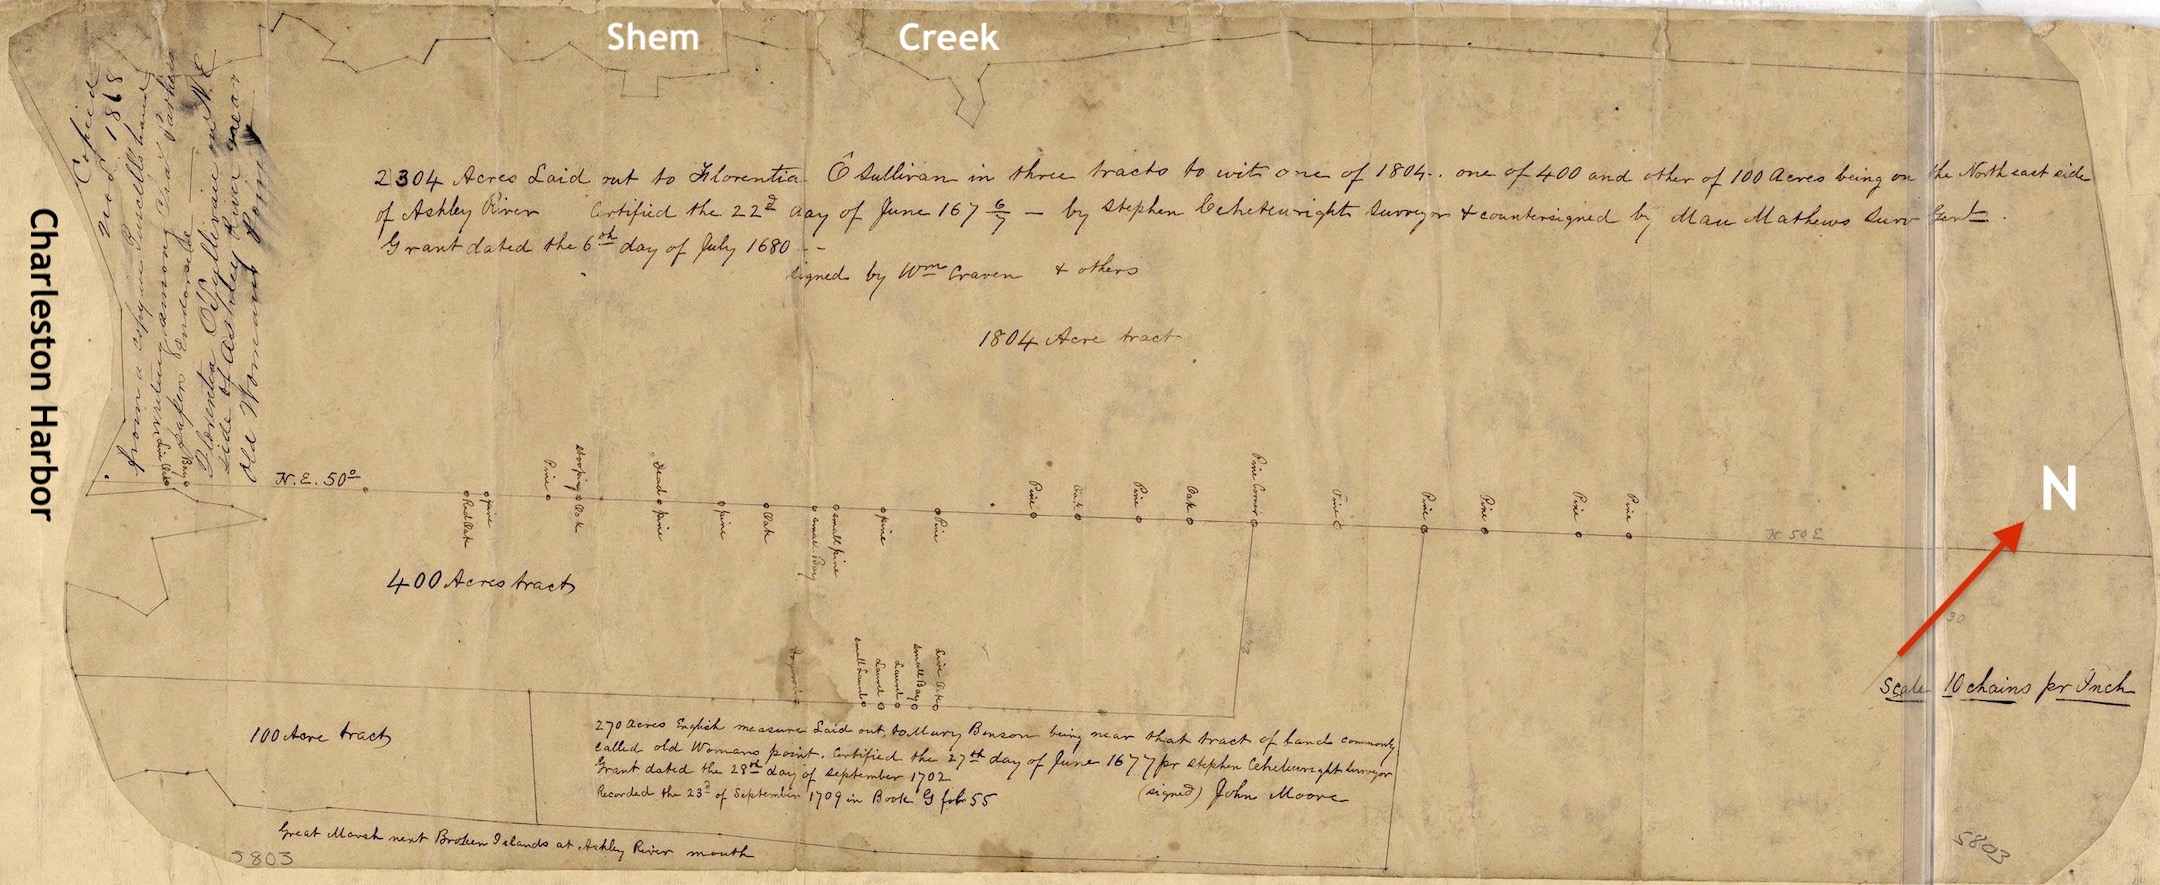 Shem Creek
Charleston Harbor
Copied
1868
from a copy in Purcell's hand
writing among Chas Parkers
papers Endorsed
Florentia O'Sullivan on N.E
side of Ashley River near
Old Womans Point
2304 Acres Laid out to Florentia O Sullivan in three tracts to wit one of 1804. one of 400 and other of 100 Acres being on the North east side
of Ashley River Certified the 22d day of June 167 6/7 — by Stephen surveyor & countersigned by Mau Mathews Surv Genl.
Grant dated the 6th day of July 1680 --
signed by Wm Craven & others
1804 Acre tract
Live Oak
Bay
N.E. 50°
Red Oak
pine
Pine
Stooping Oak
Dead pine
pine
Oak
small Bay
small pine
pine
Pine
Pine
Oak
Pine
Oak
Pine Corner
Pine
Pine
Pine
Pine
Pine
N 50 E
N
400 Acres tract
small Laurel
Laurel
Laurel
small Bay
Live Oak
30
Scale 10 chains pr Inch
100 Acre tract
270 Acres English measure Laid out to Mary Benson being near that tract of land commonly
called old Womans point. Certified the 27th day of June 1677 pr Stephen surveyor
Grant dated the 28th day of September 1702
Recorded the 23d of September 1709 in Book G fol 55 (signed) John Moore
Great Marsh next Broken Islands at Ashley River mouth
5803
5803